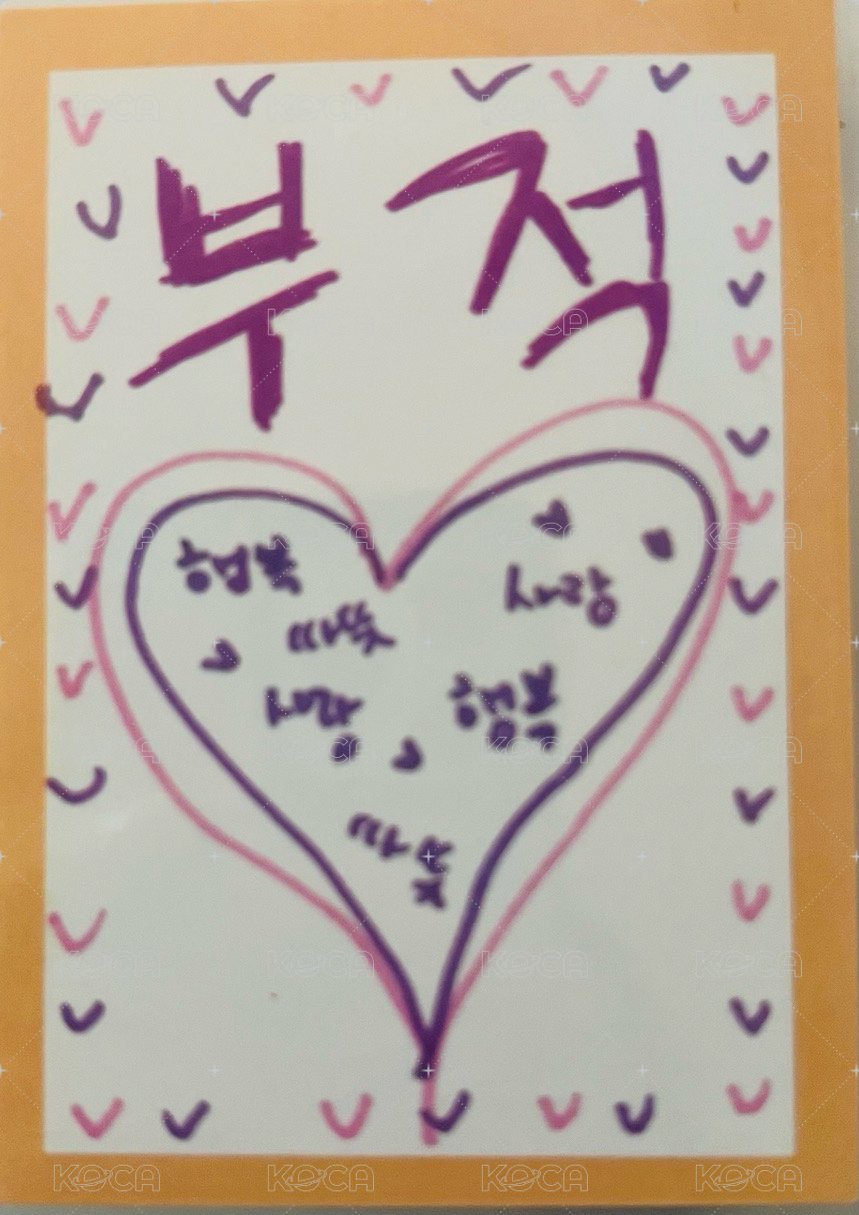 부적
행복
사랑
따뜻
사랑
행복
따뜻
KOCA